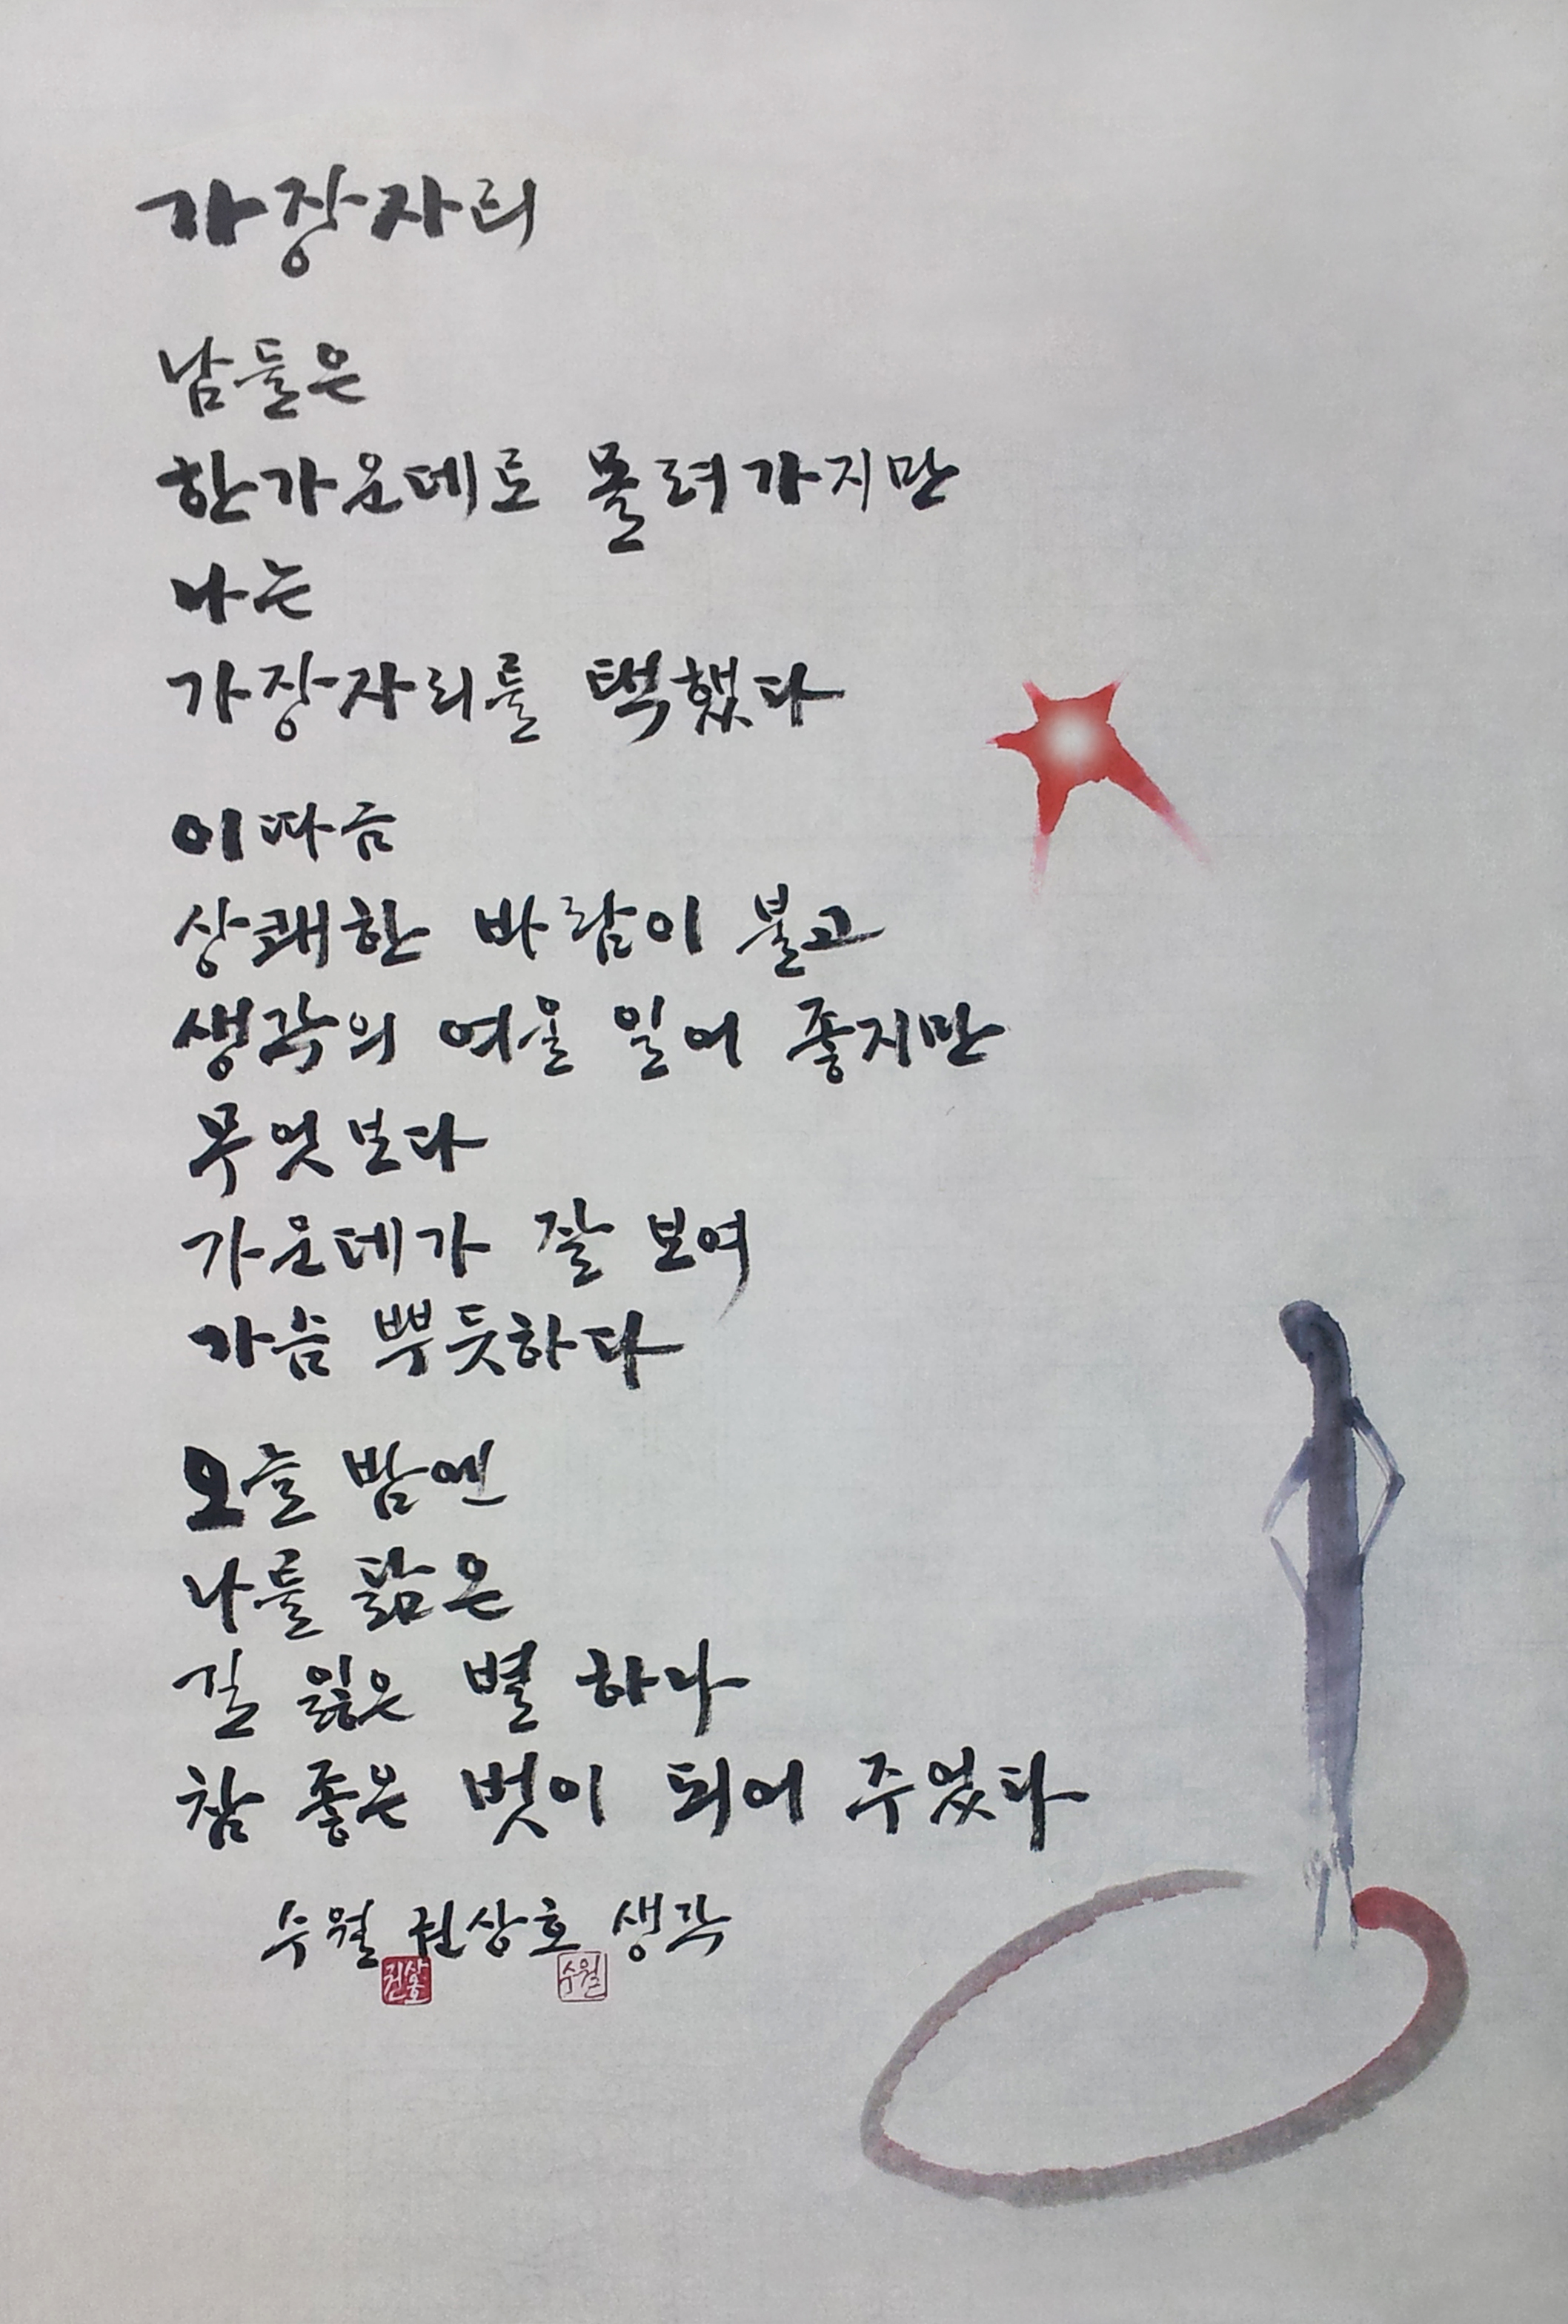 가장자리
남들은
한가운데로 몰려가지만
나는
가장자리를 택했다
이따금
상쾌한 바람이 불고
생각의 여울 일어 좋지만
무엇보다
가운데가 잘 보여
가슴 뿌듯하다
오늘 밤엔
나를 닮은
길 잃은 별 하나
참 좋은 벗이 되어 주었다
수월 권상호 생각
권상호
수월